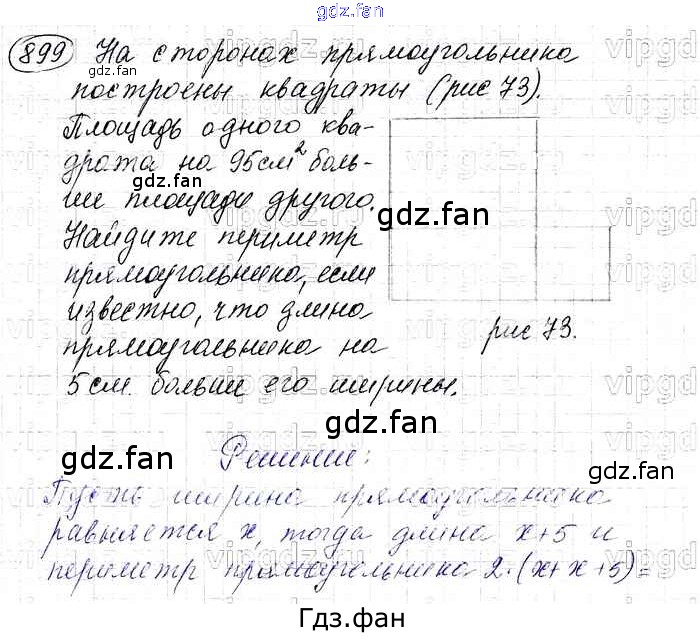 gdz.fan
899 На сторонах прямоугольника
построены квадраты (рис 73).
Площадь одного ква-
драта на 95 см² боль-
ше площади другого.
Найдите периметр
прямоугольника, если
известно, что длина
прямоугольника на
5 см. больше его ширины.
рис 73.
Решение:
Пусть ширина прямоугольника
равняется х, тогда длина х+5 и
периметр прямоугольника 2·(х+х+5)=
gdz.fan
gdz.fan
gdz.fan
gdz.fan
gdz.fan
gdz.fan
gdz.fan
Гдз.фан